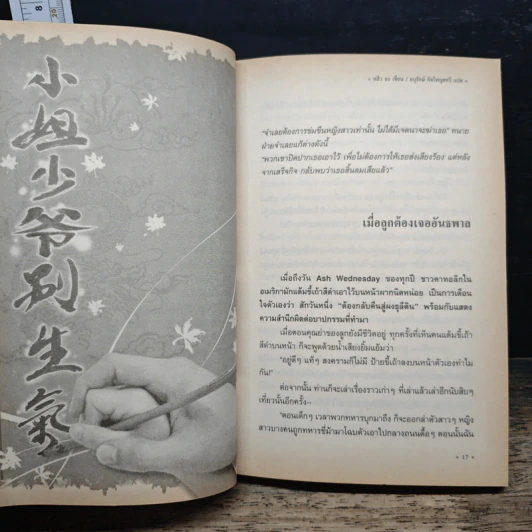 小姐少爷别生氣
« หลิว ยง เขียน / อนุรักษ์ กิจไพบูลทวี แปล »
"จำเลยต้องการข่มขืนหญิงสาวเท่านั้น ไม่ได้มีเจตนาจะฆ่าเธอ" ทนาย
ฝ่ายจำเลยแก้ต่างดังนี้
"พวกเขาปิดปากเธอเอาไว้ เพื่อไม่ต้องการให้เธอส่งเสียงร้อง แต่หลัง
จากเสร็จกิจ กลับพบว่าเธอสิ้นลมเสียแล้ว"
เมื่อลูกต้องเจออันธพาล
เมื่อถึงวัน Ash Wednesday ของทุกปี ชาวคาทอลิกใน
อเมริกามักแต้มขี้เถ้าสีดำเอาไว้บนหน้าผากนิดหน่อย เป็นการเตือน
ใจตัวเองว่า สักวันหนึ่ง "ต้องกลับคืนสู่ผงธุลีดิน" พร้อมกับแสดง
ความสำนึกผิดต่อบาปกรรมที่ทำมา
เมื่อตอนคุณย่าของลูกยังมีชีวิตอยู่ ทุกครั้งที่เห็นคนแต้มขี้เถ้า
สีดำบนหน้า ก็จะพูดด้วยน้ำเสียงยิ้มแย้มว่า
"อยู่ดีๆ แท้ๆ สงครามก็ไม่มี ป้ายขี้เถ้าลงบนหน้าตัวเองทำไม
กัน!"
ต่อจากนั้น ท่านก็จะเล่าเรื่องราวเก่าๆ ที่เล่าแล้วเล่าอีกนับสิบๆ
เที่ยวนั้นอีกครั้ง--
"ตอนเด็กๆ เวลาพวกทหารบุกมาถึง ก็จะออกล่าตัวสาวๆ หญิง
สาวบางคนถูกทหารขี่ม้ามาโฉบตัวเอาไปกลางถนนดื้อๆ ตอนนั้นฉัน
« 17 »